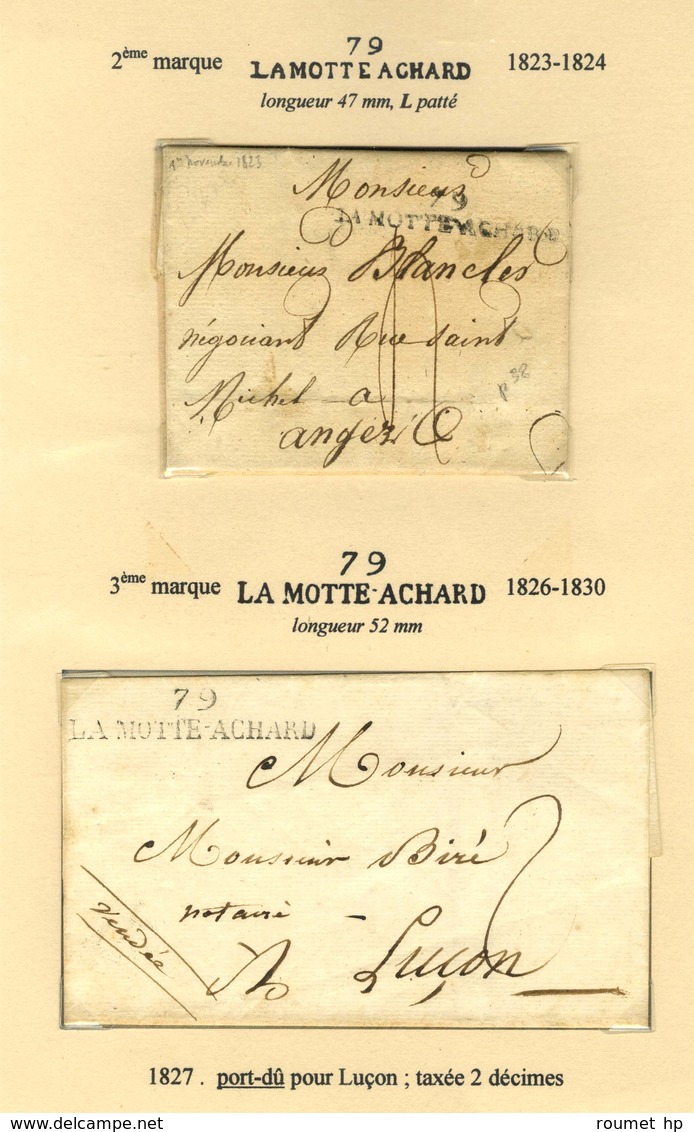 79
2ème marque LAMOTTE ACHARD 1823-1824
longueur 47 mm, L patté
novembre 1823
Monsieur
79
LA MOTTE ACHARD
Monsieur Blancler
négociant Rue Saint
Michel a
angers
p 38
79
3ème marque LA MOTTE-ACHARD 1826-1830
longueur 52 mm
79
LA MOTTE-ACHARD
Monsieur
Monsieur Biré
notaire
Vendée
A Luçon
2
1827 . port-dû pour Luçon ; taxée 2 décimes
roumet hp